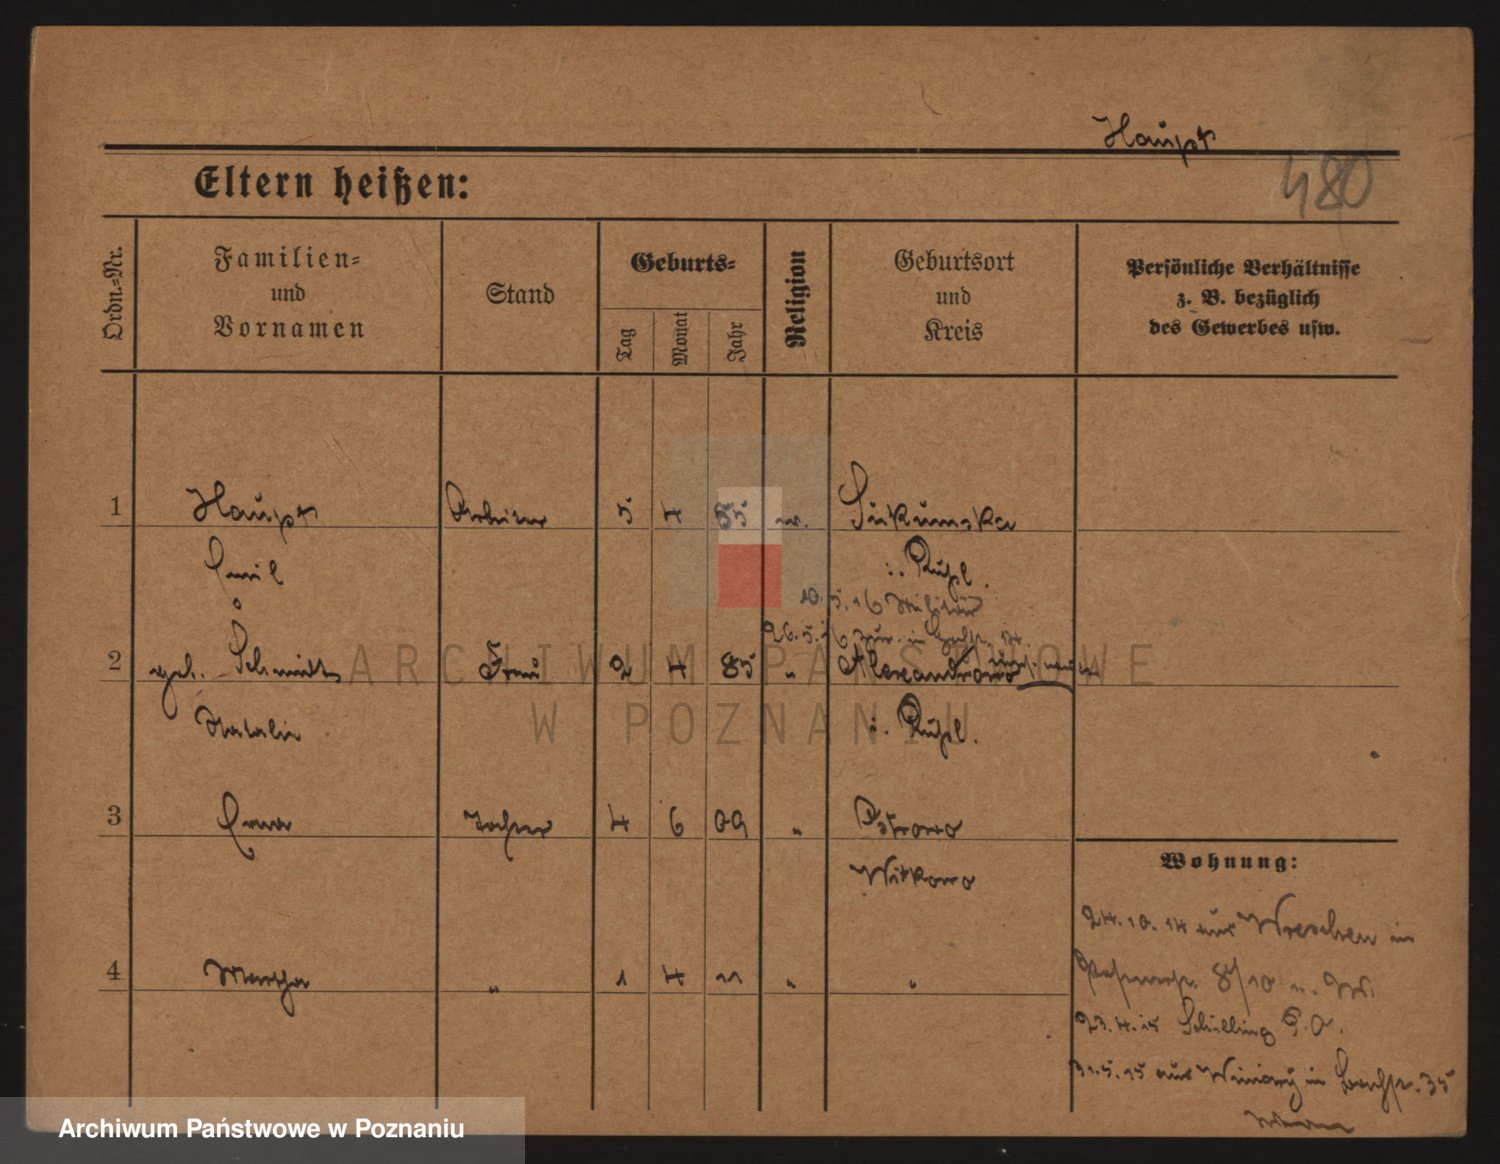 Haupt
480
Eltern heißen:
Ordn.-Nr.
Familien-
und
Vornamen
Stand
Geburts-
Tag
Monat
Jahr
Religion
Geburtsort
und
Kreis
Persönliche Verhältnisse
z. B. bezüglich
des Gewerbes usw.
1 Haupt Arbeiter 5 4 85 ev.
Emil i. Rußl.
10.5.16 Militär
26.5.16 zur. in
2 geb. Schmidt Frau 2 4 85 " Alexandrowo
Natalie i. Rußl.
3 Erna Tochter 4 6 09 " Ostrowo
Witkowo
4 Martha " 1 4 11 " "
Wohnung:
24.10.14 aus Wreschen in
8/10 u. W.
23.4.15 Schilling
31.5.15 aus Winiary in 35
ARCHIWUM PAŃSTWOWE
W POZNANIU
Archiwum Państwowe w Poznaniu